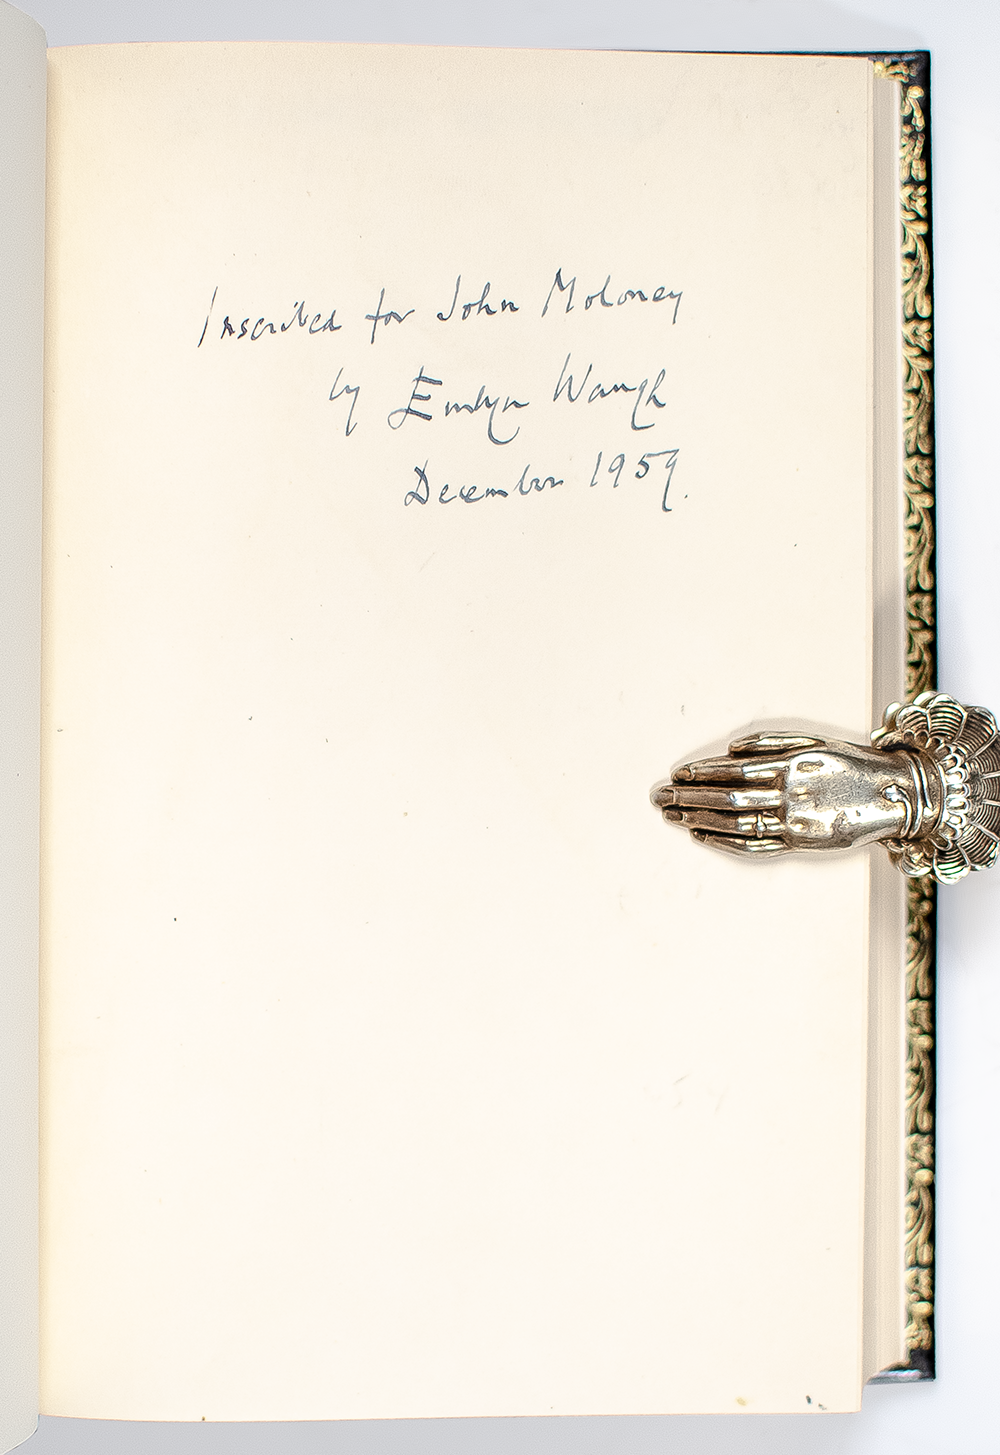 Inscribed for John Moloney
by Evelyn Waugh
December 1959.